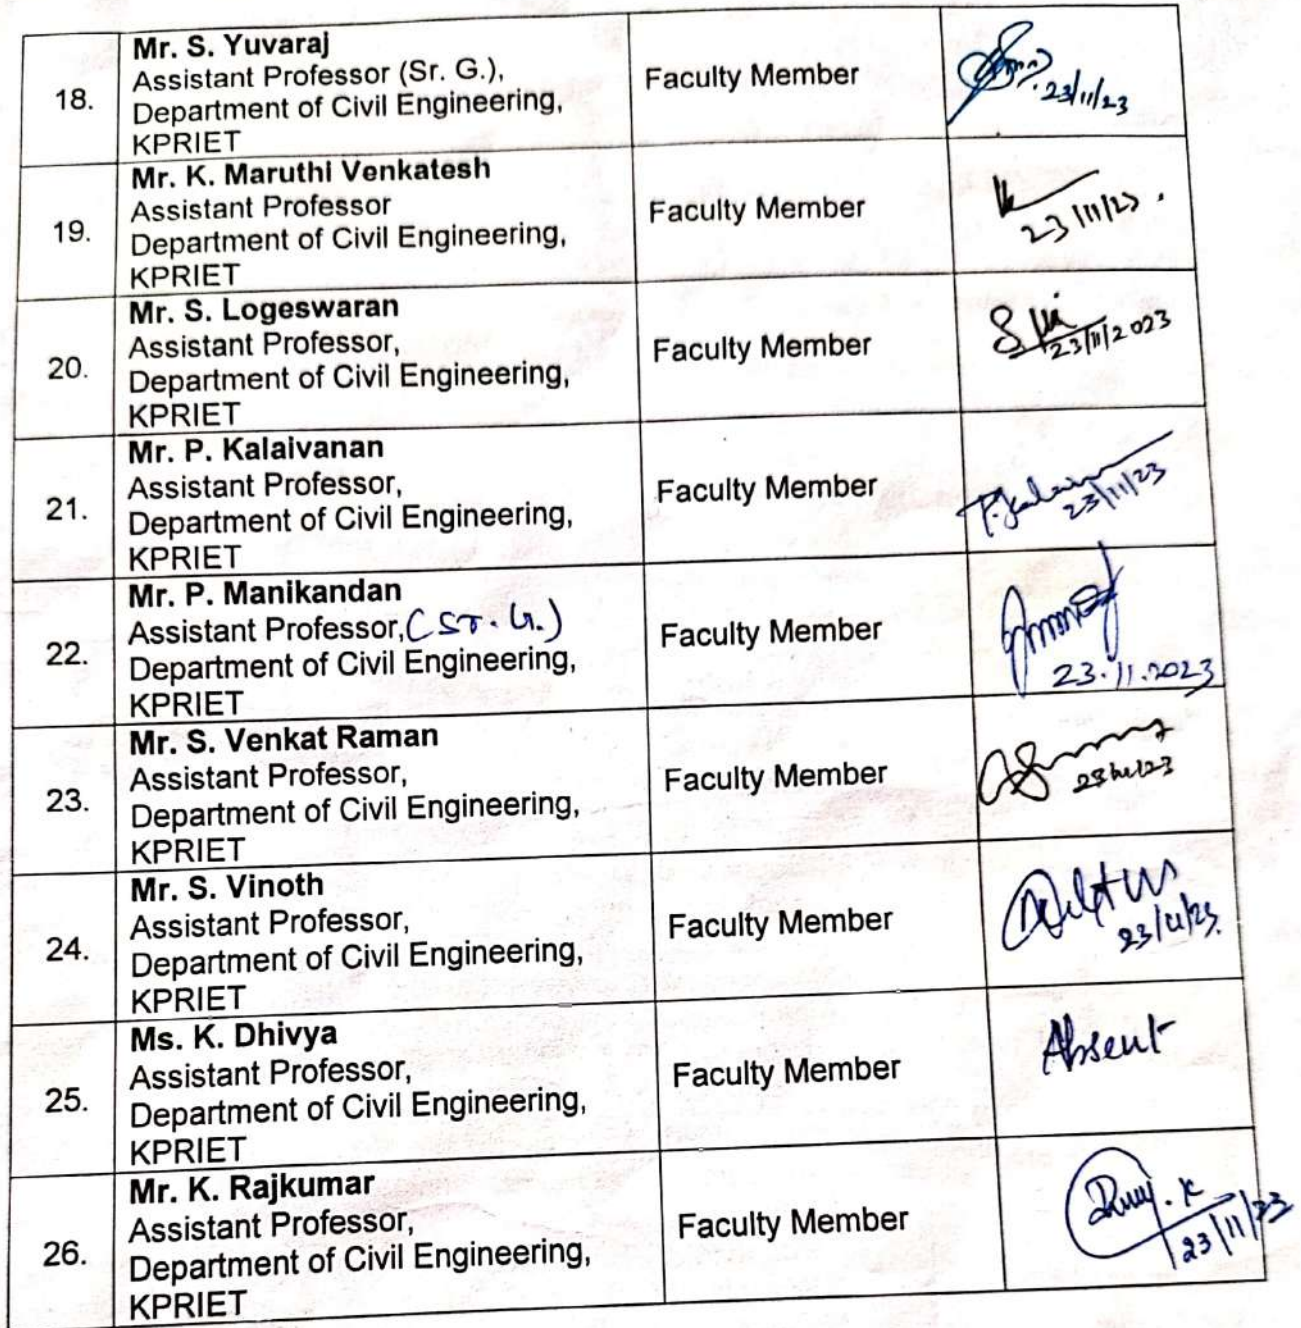 18.
Mr. S. Yuvaraj
Assistant Professor (Sr. G.),
Department of Civil Engineering,
KPRIET
Faculty Member
23/11/23
19.
Mr. K. Maruthi Venkatesh
Assistant Professor
Department of Civil Engineering,
KPRIET
Faculty Member
23/11/23.
20.
Mr. S. Logeswaran
Assistant Professor,
Department of Civil Engineering,
KPRIET
Faculty Member
23/11/2023
21.
Mr. P. Kalaivanan
Assistant Professor,
Department of Civil Engineering,
KPRIET
Faculty Member
23/11/23
22.
Mr. P. Manikandan
Assistant Professor, (Sr. G.)
Department of Civil Engineering,
KPRIET
Faculty Member
23.11.2023
23.
Mr. S. Venkat Raman
Assistant Professor,
Department of Civil Engineering,
KPRIET
Faculty Member
23/11/23
24.
Mr. S. Vinoth
Assistant Professor,
Department of Civil Engineering,
KPRIET
Faculty Member
23/11/23.
25.
Ms. K. Dhivya
Assistant Professor,
Department of Civil Engineering,
KPRIET
Faculty Member
Absent
26.
Mr. K. Rajkumar
Assistant Professor,
Department of Civil Engineering,
KPRIET
Faculty Member
23/11/23